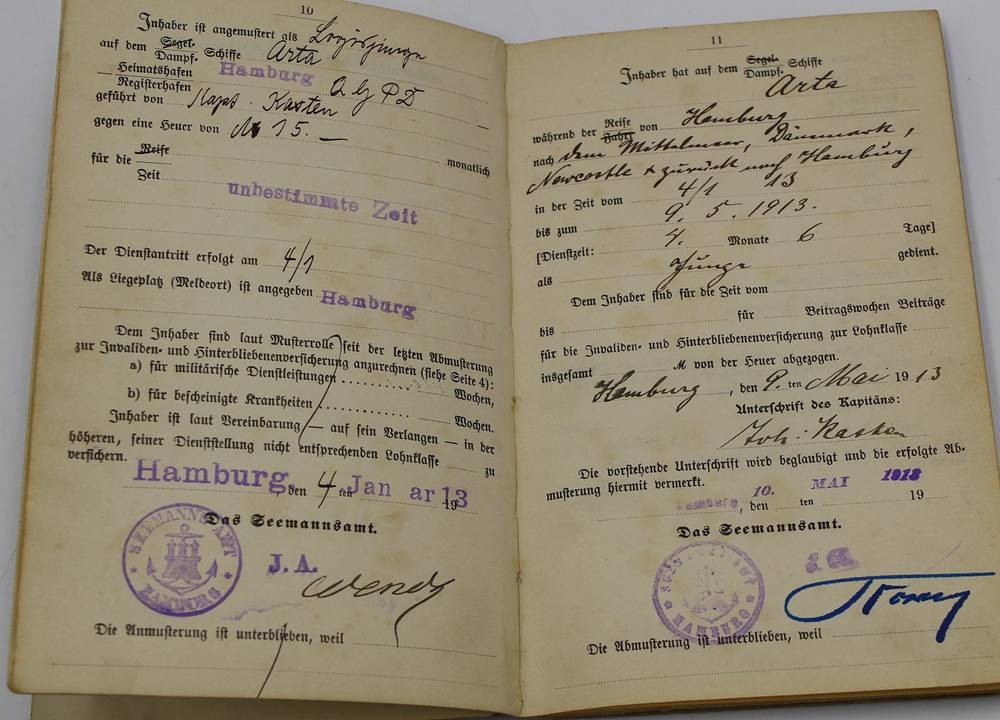 10
Inhaber ist angemustert als Logisjunge
auf dem Segel- Dampf- Schiffe Arta
Heimatshafen Hamburg
Registerhafen
geführt von Kapt. Kasten
gegen eine Heuer von M 15. —
monatlich
für die Reise
Zeit
unbestimmte Zeit
Der Dienstantritt erfolgt am 4/1
Als Liegeplatz (Meldeort) ist angegeben Hamburg
Dem Inhaber sind laut Musterrolle seit der letzten Abmusterung
zur Invaliden- und Hinterbliebenenversicherung anzurechnen (siehe Seite 4):
a) für militärische Dienstleistungen Wochen,
b) für bescheinigte Krankheiten Wochen.
Inhaber ist laut Vereinbarung — auf sein Verlangen — in der
höheren, seiner Dienststellung nicht entsprechenden Lohnklasse zu
versichern.
Hamburg, den 4 ten Januar 1913
Das Seemannsamt.
SEEMANNSAMT HAMBURG
J.A.
Die Anmusterung ist unterblieben, weil
11
Inhaber hat auf dem Segel- Dampf- Schiffe
Arta
während der Reise Fahrt von Hamburg
nach dem Mittelmeer, Dänemark,
Newcastle + zurück nach Hamburg
in der Zeit vom 4/1 13
bis zum 9. 5. 1913.
[Dienstzeit: 4. Monate 6 Tage]
als Junge gedient.
Dem Inhaber sind für die Zeit vom
bis für Beitragswochen Beiträge
für die Invaliden- und Hinterbliebenenversicherung zur Lohnklasse
insgesamt M von der Heuer abgezogen.
Hamburg, den 9. ten Mai 1913
Unterschrift des Kapitäns:
Joh. Kasten
Die vorstehende Unterschrift wird beglaubigt und die erfolgte Ab-
musterung hiermit vermerkt.
Hamburg, den 10. ten MAI 1913 19
Das Seemannsamt.
HAMBURG
Die Abmusterung ist unterblieben, weil